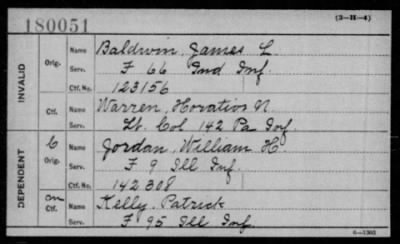 180051
(3-H-4)
INVALID
Orig. Name Baldwin, James L.
Serv. F 66 Ind Inf.
Ctf. No. 123156
Ctf. Name Warren, Horatio N.
Serv. Lt. Col 142 Pa Inf.
DEPENDENT
C Orig. Name Jordan, William H.
Serv. F 9 Ill Inf.
Ctf. No. 142308
Ctf. Name Kelly, Patrick
Serv. F 95 Ill Inf